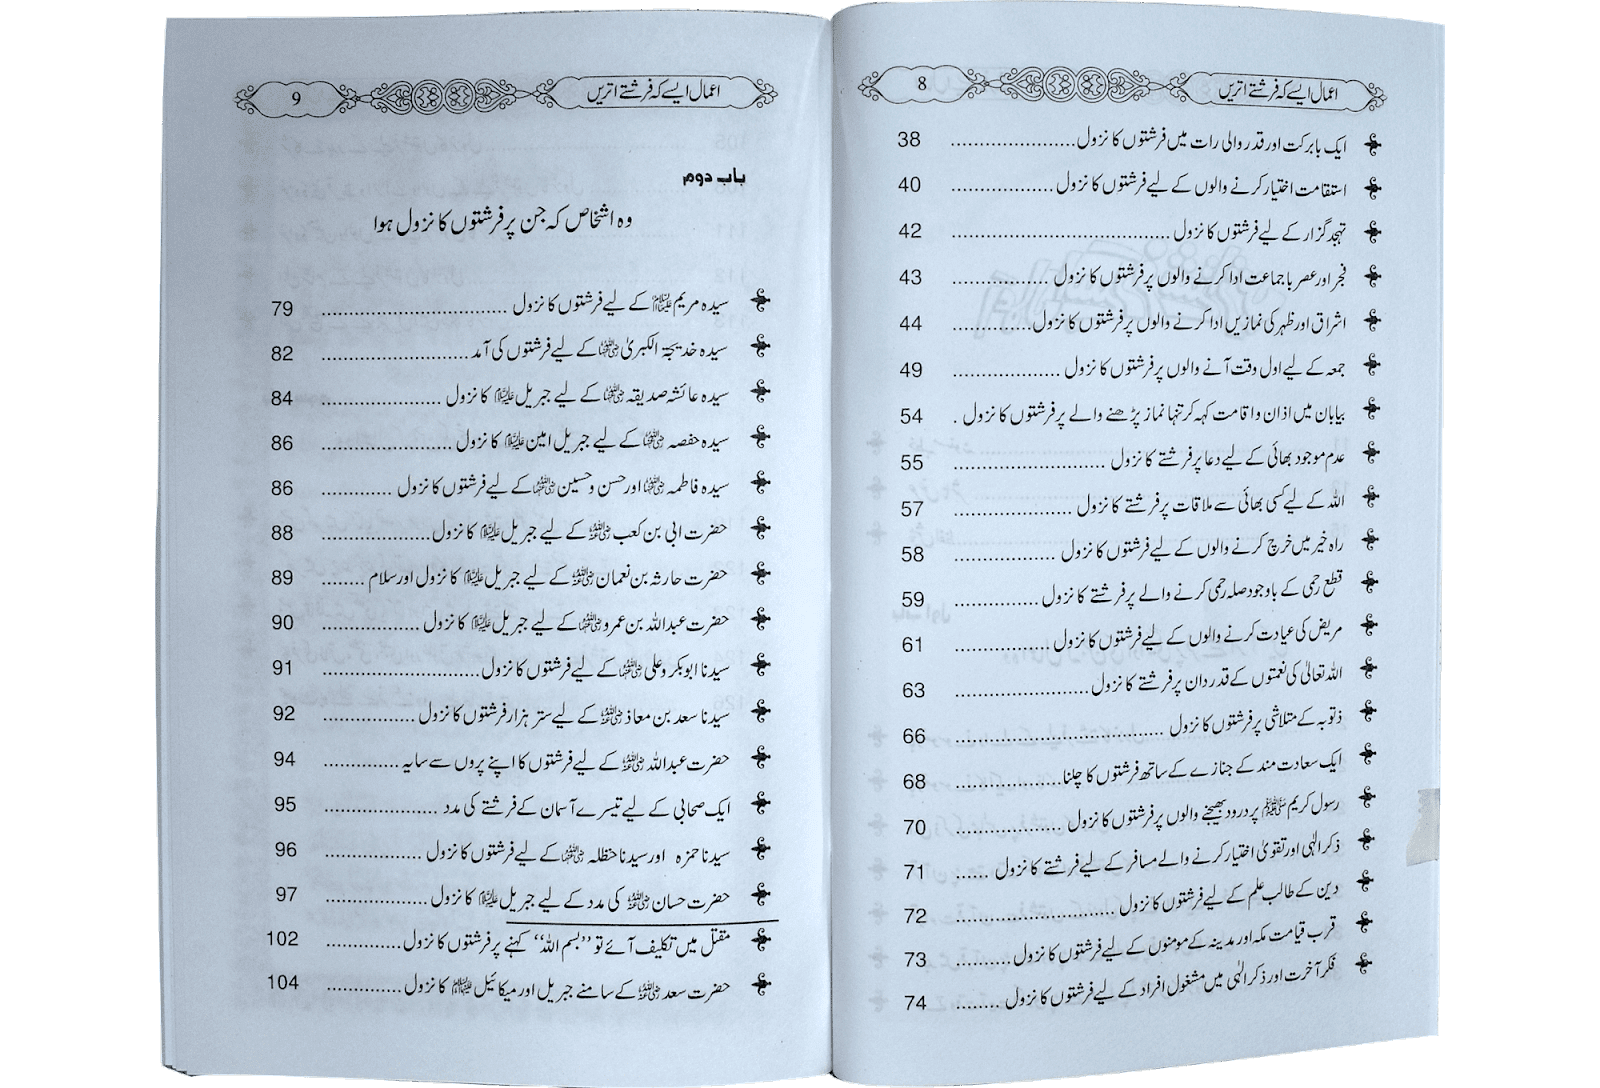 اعمال ایسے کہ فرشتے اتریں 8
ایک بابرکت اور قدر والی رات میں فرشتوں کا نزول ..................... 38
استقامت اختیار کرنے والوں کے لیے فرشتوں کا نزول ................. 40
تہجد گزار کے لیے فرشتوں کا نزول .................................... 42
فجر اور عصر باجماعت ادا کرنے والوں پر فرشتوں کا نزول ................ 43
اشراق اور ظہر کی نمازیں ادا کرنے والوں پر فرشتوں کا نزول ............. 44
جمعہ کے لیے اول وقت آنے والوں پر فرشتوں کا نزول .................. 49
بیابان میں اذان و اقامت کہہ کر تنہا نماز پڑھنے والے پر فرشتوں کا نزول . 54
عدم موجود بھائی کے لیے دعا پر فرشتے کا نزول ......................... 55
اللہ کے لیے کسی بھائی سے ملاقات پر فرشتے کا نزول ........................ 57
راہ خیر میں خرچ کرنے والوں کے لیے فرشتوں کا نزول ................. 58
قطع رحمی کے باوجود صلہ رحمی کرنے والے پر فرشتے کا نزول .............. 59
مریض کی عیادت کرنے والوں کے لیے فرشتوں کا نزول ................ 61
اللہ تعالیٰ کی نعمتوں کے قدر دان پر فرشتے کا نزول ...................... 63
توبہ کے متلاشی پر فرشتوں کا نزول ................................... 66
ایک سعادت مند کے جنازے کے ساتھ فرشتوں کا چلنا ....................... 68
رسول کریم ﷺ پر درود بھیجنے والوں پر فرشتوں کا نزول .................. 70
ذکر الٰہی اور تقویٰ اختیار کرنے والے مسافر کے لیے فرشتے کا نزول ...... 71
دین کے طالب علم کے لیے فرشتوں کا نزول ............................ 72
قرب قیامت مکہ اور مدینہ کے مومنوں کے لیے فرشتوں کا نزول .......... 73
فکر آخرت اور ذکر الٰہی میں مشغول افراد کے لیے فرشتوں کا نزول ........ 74
اعمال ایسے کہ فرشتے اتریں 9
باب دوم
وہ اشخاص کہ جن پر فرشتوں کا نزول ہوا
سیدہ مریم علیہا السلام کے لیے فرشتوں کا نزول ............................... 79
سیدہ خدیجۃ الکبریٰ رضی اللہ عنہا کے لیے فرشتوں کی آمد ......................... 82
سیدہ عائشہ صدیقہ رضی اللہ عنہا کے لیے جبریل علیہ السلام کا نزول .................... 84
سیدہ حفصہ رضی اللہ عنہا کے لیے جبریل امین علیہ السلام کا نزول ...................... 86
سیدہ فاطمہ رضی اللہ عنہا اور حسن و حسین رضی اللہ عنہما کے لیے فرشتوں کا نزول ............ 86
حضرت ابی بن کعب رضی اللہ عنہ کے لیے جبریل علیہ السلام کا نزول .................. 88
حضرت حارثہ بن نعمان رضی اللہ عنہ کے لیے جبریل علیہ السلام کا نزول اور سلام ........ 89
حضرت عبداللہ بن عمرو رضی اللہ عنہما کے لیے جبریل علیہ السلام کا نزول ................. 90
سیدنا ابوبکر و علی رضی اللہ عنہما کے لیے فرشتوں کا نزول .......................... 91
سیدنا سعد بن معاذ رضی اللہ عنہ کے لیے ستر ہزار فرشتوں کا نزول ................ 92
حضرت عبداللہ رضی اللہ عنہ کے لیے فرشتوں کا اپنے پروں سے سایہ ............. 94
ایک صحابی کے لیے تیسرے آسمان کے فرشتے کی مدد ................... 95
سیدنا حمزہ اور سیدنا حنظلہ رضی اللہ عنہما کے لیے فرشتوں کا نزول ................ 96
حضرت حسان رضی اللہ عنہ کی مدد کے لیے جبریل علیہ السلام کا نزول .................. 97
مقتل میں تکلیف آئے تو ”بسم اللہ“ کہنے پر فرشتوں کا نزول ............. 102
حضرت سعد رضی اللہ عنہ کے سامنے جبریل اور میکائیل علیہما السلام کا نزول ............. 104